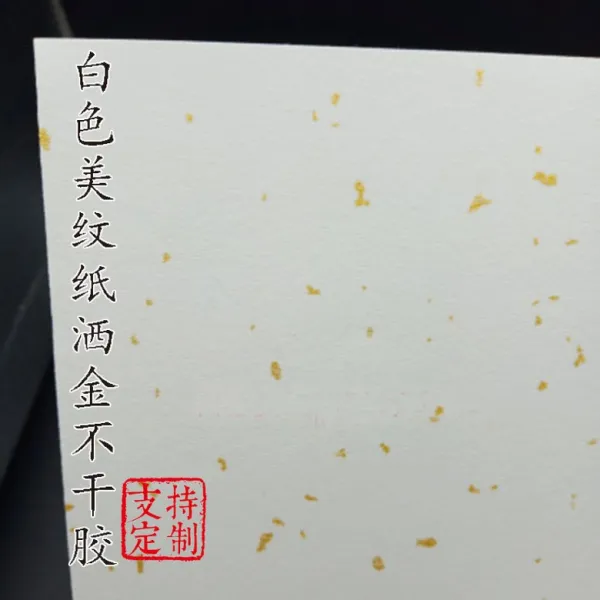 白色美纹纸洒金不干胶
支持定制